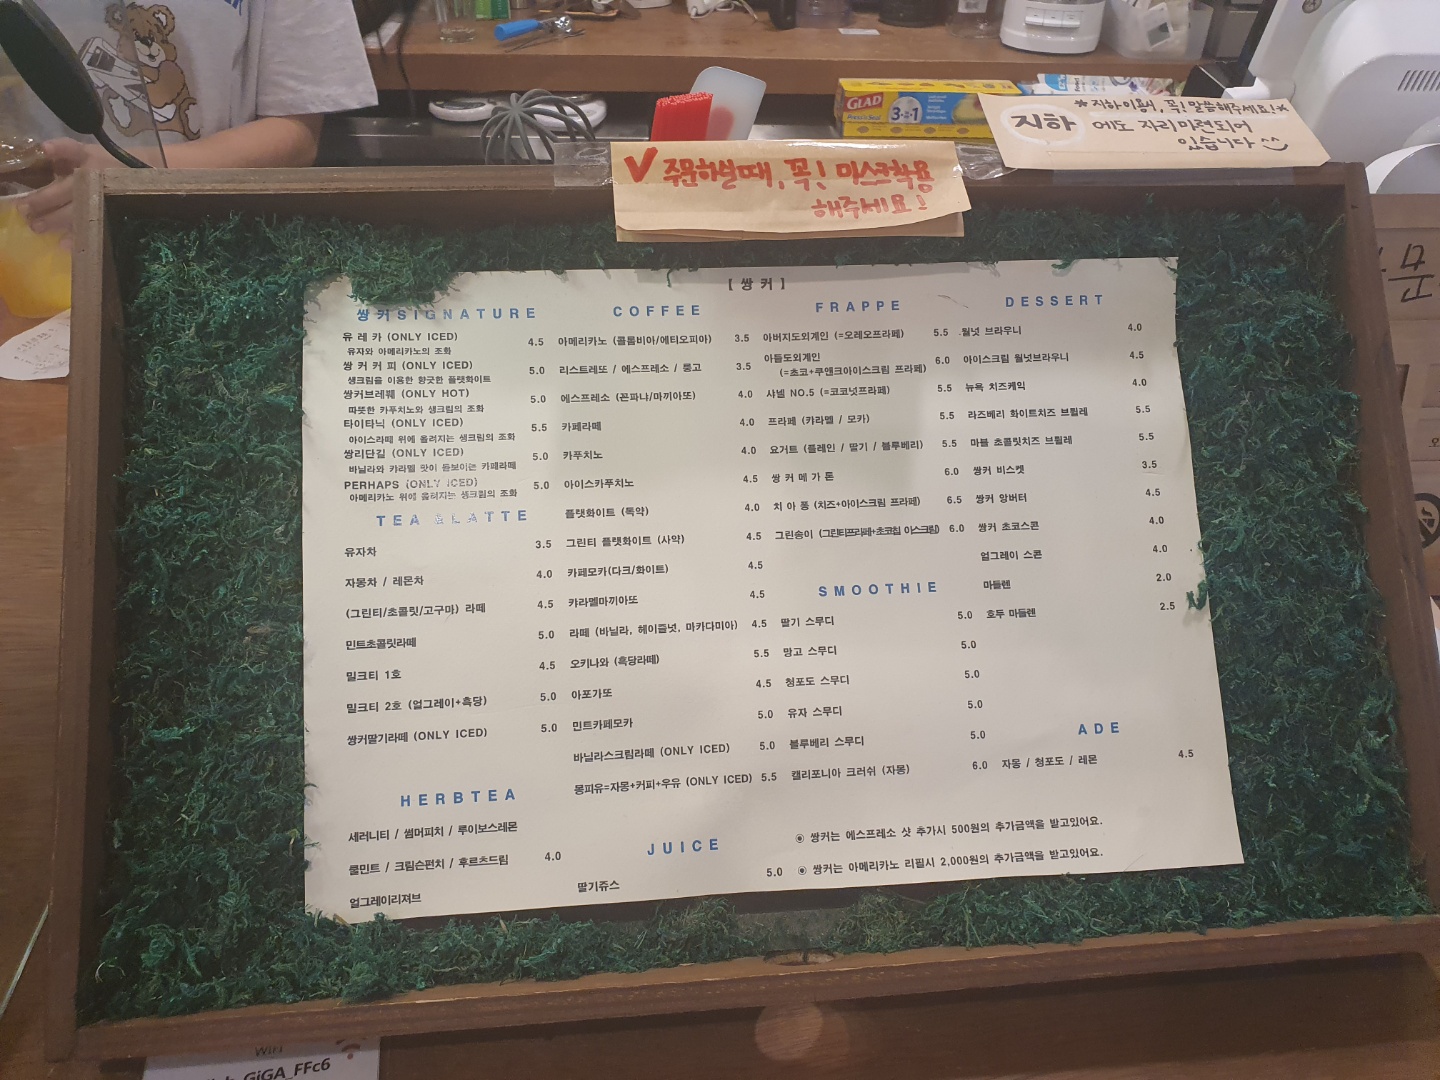 GLAD
3in1
Press'n Seal
*지하이용시, 꼭! 말씀해주세요!*
지하 에도 자리마련되어
있습니다
V 주문하실때, 꼭! 마스크착용
해주세요!
[ 쌍 커 ]
쌍 커 SIGNATURE
유 레 카 (ONLY ICED) 4.5
유자와 아메리카노의 조화
쌍 커 커 피 (ONLY ICED) 5.0
생크림을 이용한 향긋한 플랫화이트
쌍커브레붸 (ONLY HOT) 5.0
따뜻한 카푸치노와 생크림의 조화
타이타닉 (ONLY ICED) 5.5
아이스라떼 위에 올려지는 생크림의 조화
쌍리단길 (ONLY ICED) 5.0
바닐라와 카라멜 맛이 돋보이는 카페라떼
PERHAPS (ONLY ICED) 5.0
아메리카노 위에 올려지는 생크림의 조화
TEA & LATTE
유자차 3.5
자몽차 / 레몬차 4.0
(그린티/초콜릿/고구마) 라떼 4.5
민트초콜릿라떼 5.0
밀크티 1호 4.5
밀크티 2호 (얼그레이+흑당) 5.0
쌍커딸기라떼 (ONLY ICED) 5.0
HERBTEA
세러니티 / 썸머피치 / 루이보스레몬
쿨민트 / 크림슨펀치 / 후르츠드림 4.0
얼그레이리져브
COFFEE
아메리카노 (콜롬비아/에티오피아) 3.5
리스트레또 / 에스프레소 / 룽고 3.5
에스프레소 (꼰파냐/마끼아또) 4.0
카페라떼 4.0
카푸치노 4.0
아이스카푸치노 4.5
플랫화이트 (독약) 4.0
그린티 플랫화이트 (사약) 4.5
카페모카(다크/화이트) 4.5
캬라멜마끼아또 4.5
라떼 (바닐라, 헤이즐넛, 마카다미아) 4.5
오키나와 (흑당라떼) 5.5
아포가또 4.5
민트카페모카 5.0
바닐라스크림라떼 (ONLY ICED) 5.0
몽피유=자몽+커피+우유 (ONLY ICED) 5.5
JUICE
딸기쥬스 5.0
FRAPPE
아버지도외계인 (=오레오프라페) 5.5
아들도외계인
(=초코+쿠앤크아이스크림 프라페) 6.0
샤넬 NO.5 (=코코넛프라페) 5.5
프라페 (캬라멜 / 모카) 5.5
요거트 (플레인 / 딸기 / 블루베리) 5.5
쌍 커 메 가 톤 6.0
치 아 퐁 (치즈+아이스크림 프라페) 6.5
그린송이 (그린티프라페+초코칩 아스크림) 6.0
SMOOTHIE
딸기 스무디 5.0
망고 스무디 5.0
청포도 스무디 5.0
유자 스무디 5.0
블루베리 스무디 5.0
캘리포니아 크러쉬 (자몽) 6.0
DESSERT
월넛 브라우니 4.0
아이스크림 월넛브라우니 4.5
뉴욕 치즈케익 4.0
라즈베리 화이트치즈 브륄레 5.5
마블 초콜릿치즈 브륄레 5.5
쌍커 비스켓 3.5
쌍커 앙버터 4.5
쌍커 초코스콘 4.0
얼그레이 스콘 4.0
마들렌 2.0
호두 마들렌 2.5
ADE
자몽 / 청포도 / 레몬 4.5
◉ 쌍커는 에스프레소 샷 추가시 500원의 추가금액을 받고있어요.
◉ 쌍커는 아메리카노 리필시 2,000원의 추가금액을 받고있어요.
WiFi
GiGA_FFc6